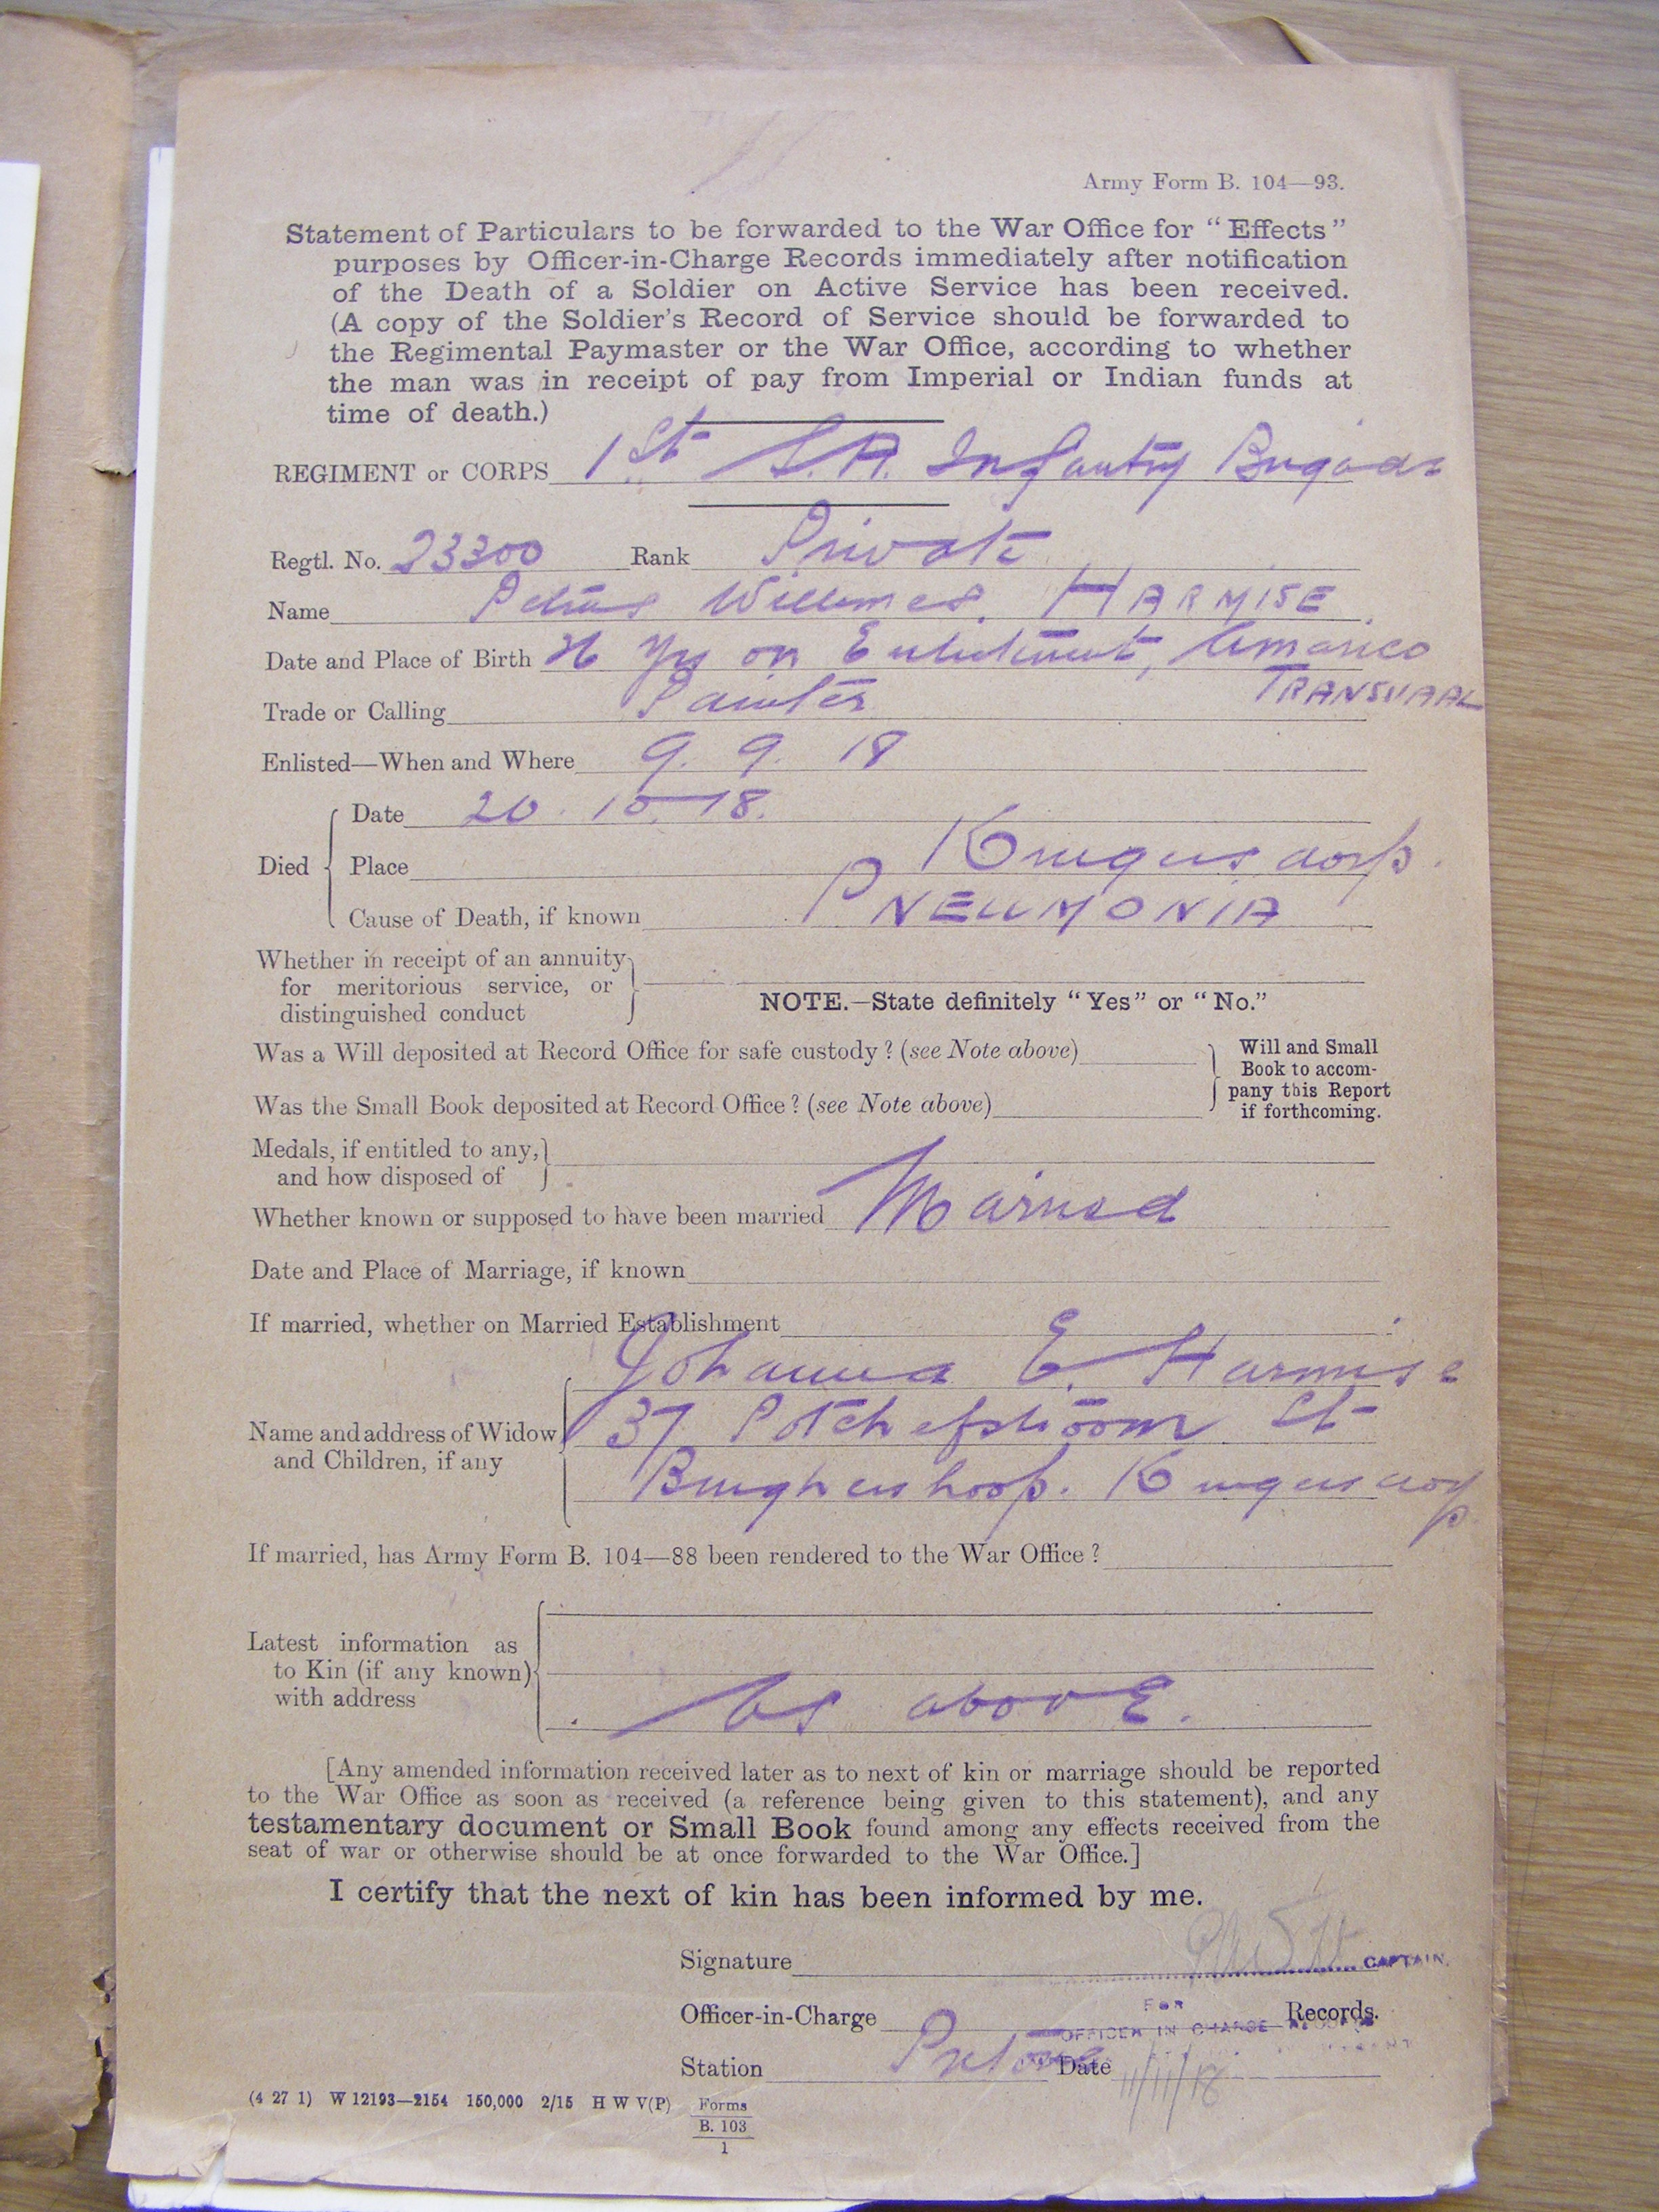 Army Form B. 104—93.
Statement of Particulars to be forwarded to the War Office for "Effects"
purposes by Officer-in-Charge Records immediately after notification
of the Death of a Soldier on Active Service has been received.
(A copy of the Soldier's Record of Service should be forwarded to
the Regimental Paymaster or the War Office, according to whether
the man was in receipt of pay from Imperial or Indian funds at
time of death.)
REGIMENT or CORPS 1st S.A. Infantry Brigade
Regtl. No. 23300 Rank Private
Name Petrus HARMSE
Date and Place of Birth Yrs on Enlistment,
TRANSVAAL
Trade or Calling Painter
Enlisted—When and Where 9. 9. 18
Died
Date 20. 10. 18.
Place Krugersdorp.
Cause of Death, if known PNEUMONIA
Whether in receipt of an annuity
for meritorious service, or
distinguished conduct
NOTE.—State definitely "Yes" or "No."
Was a Will deposited at Record Office for safe custody? (see Note above)
Was the Small Book deposited at Record Office? (see Note above)
Will and Small
Book to accom-
pany this Report
if forthcoming.
Medals, if entitled to any,
and how disposed of
Whether known or supposed to have been married Married
Date and Place of Marriage, if known
If married, whether on Married Establishment
Name and address of Widow
and Children, if any
Johanna E. Harmse
37 Potchefstroom St
Burghershoop. Krugersdorp
If married, has Army Form B. 104—88 been rendered to the War Office?
Latest information as
to Kin (if any known)
with address
As above.
[Any amended information received later as to next of kin or marriage should be reported
to the War Office as soon as received (a reference being given to this statement), and any
testamentary document or Small Book found among any effects received from the
seat of war or otherwise should be at once forwarded to the War Office.]
I certify that the next of kin has been informed by me.
Signature CAPTAIN.
FOR
Officer-in-Charge Records.
OFFICER IN CHARGE RECORDS
Station Pretoria Date 11/11/18
(4 27 1) W 12193—2154 150,000 2/15 H W V(P) Forms
B. 103
1